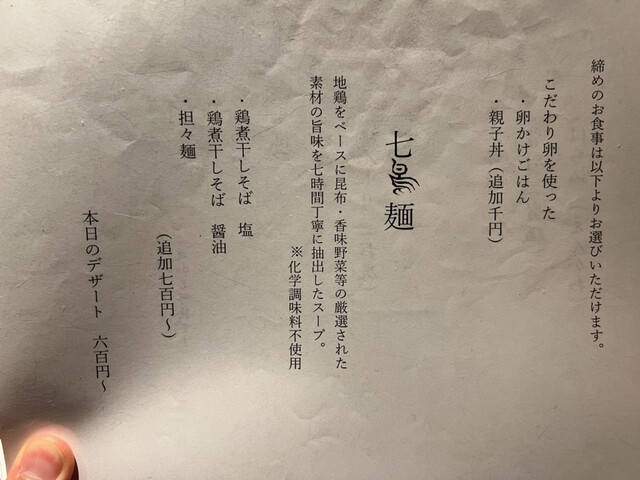 締めのお食事は以下よりお選びいただけます。
こだわり卵を使った
・卵かけごはん
・親子丼（追加千円）
七鳥麺
地鶏をベースに昆布・香味野菜等の厳選された
素材の旨味を七時間丁寧に抽出したスープ。
※化学調味料不使用
・鶏煮干しそば 塩
・鶏煮干しそば 醤油
・担々麺
（追加七百円～）
本日のデザート 六百円～